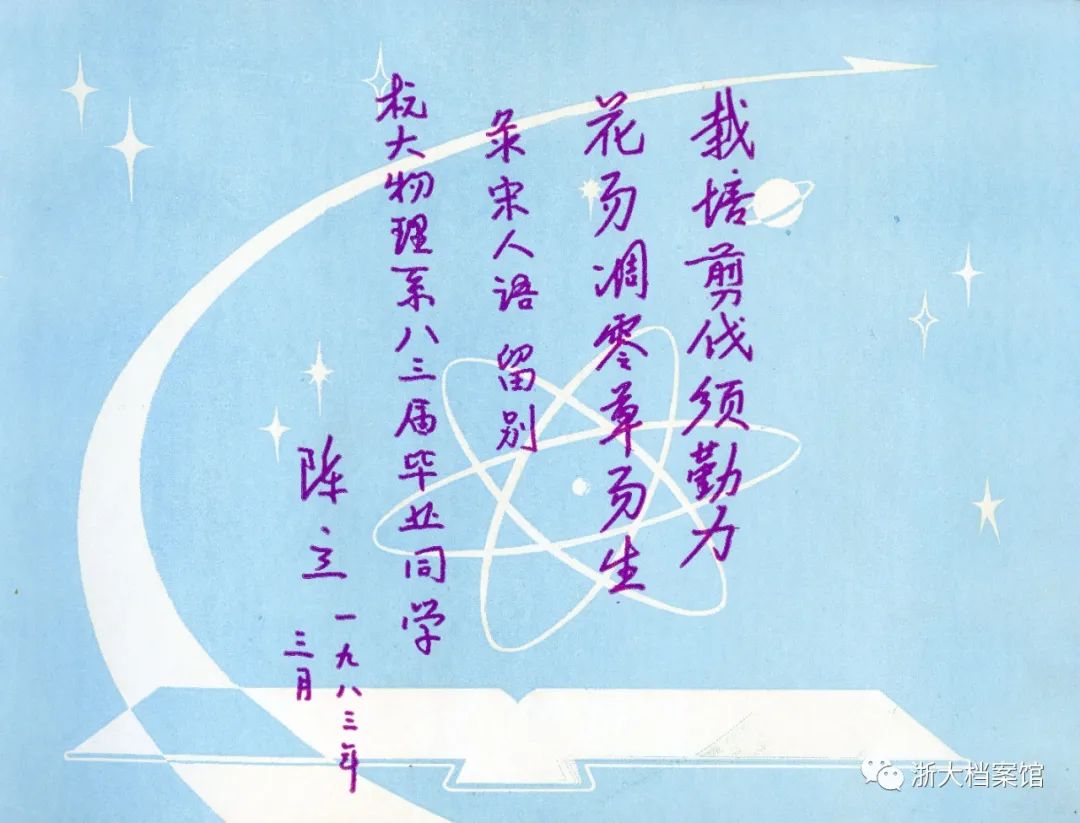 栽培剪伐须勤力
花易凋零草易生
录宋人语 留别
杭大物理系八三届毕业同学
陈立
一九八三年
三月
浙大档案馆